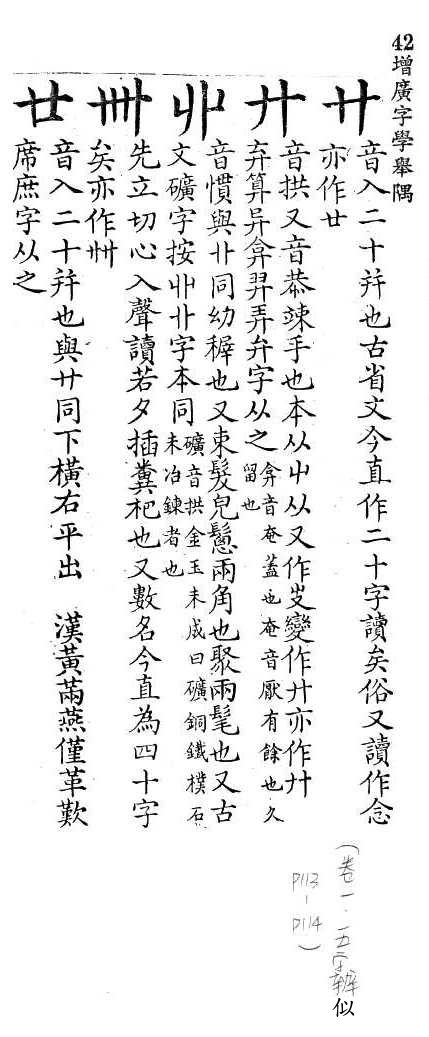 42增廣字學舉隅
廿 音入二十幷也古省文今直作二十字讀矣俗又讀作念
亦作廿
廾 音拱又音恭竦手也本从屮从又作𠬞變作廾亦作廾
弃算异弇羿弄弁字从之 弇音奄蓋也奄音厭有餘也久留也
丱 音慣與卝同幼稺也又束髮皃鬆兩角也聚兩髦也又古
文礦字按丱卝字本同 礦音拱金玉未成曰礦銅鐵樸石未冶鍊者也
卌 先立切心入聲讀若夕插糞杷也又數名今直為四十字
矣亦作卌
廿 音入二十幷也與廿同下橫右平出 漢黃㒼燕僅革歎
席庶字从之
(卷一.一二五字辨似
P113-P114)